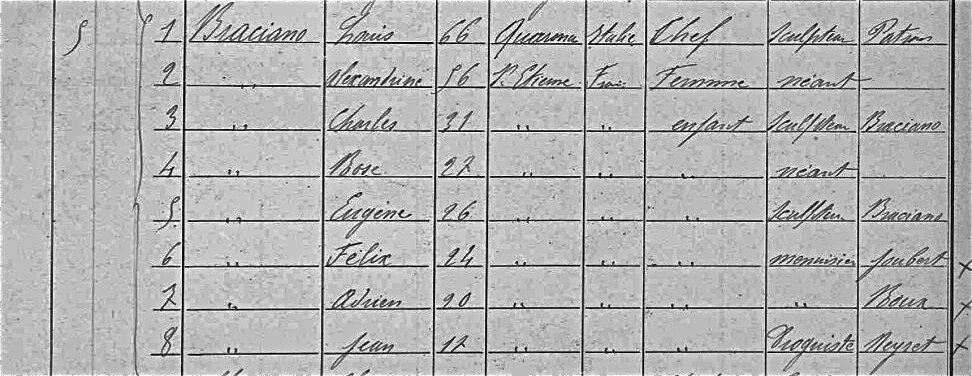 5 5 1 Braciano Louis 66 Quarona Italie Chef Sculpteur Patron
2 " Alexandrine 56 St. Etienne Frai Femme néant
3 " Charles 31 " " enfant Sculpteur Braciano
4 " Rose 27 " " " néant
5 " Eugène 26 " " " Sculpteur Braciano
6 " Félix 24 " " " menuisier Joubert x
7 " Adrien 20 " " " " Roux x
8 " Jean 17 " " " Droguiste Neyret x